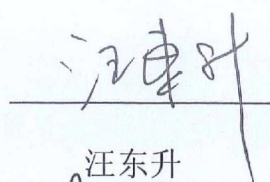 汪东升
汪东升